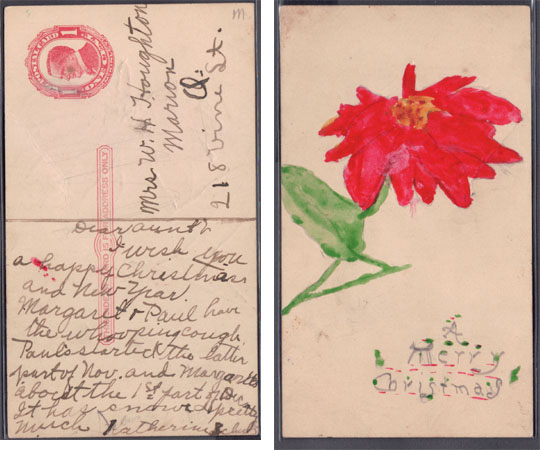 M
1
Mrs W. H Houghton
Marion
O.
218 Vine St.
ADDRESS ONLY
Dear aunt
I wish you
a happy Christmas
and New Year.
Margaret & Paul have
the whooping cough
Paul's started the latter
part of Nov. and Margarets
about the 1st part of Dec
It has snowed pretty
much Katherine
A
Merry
Christmas